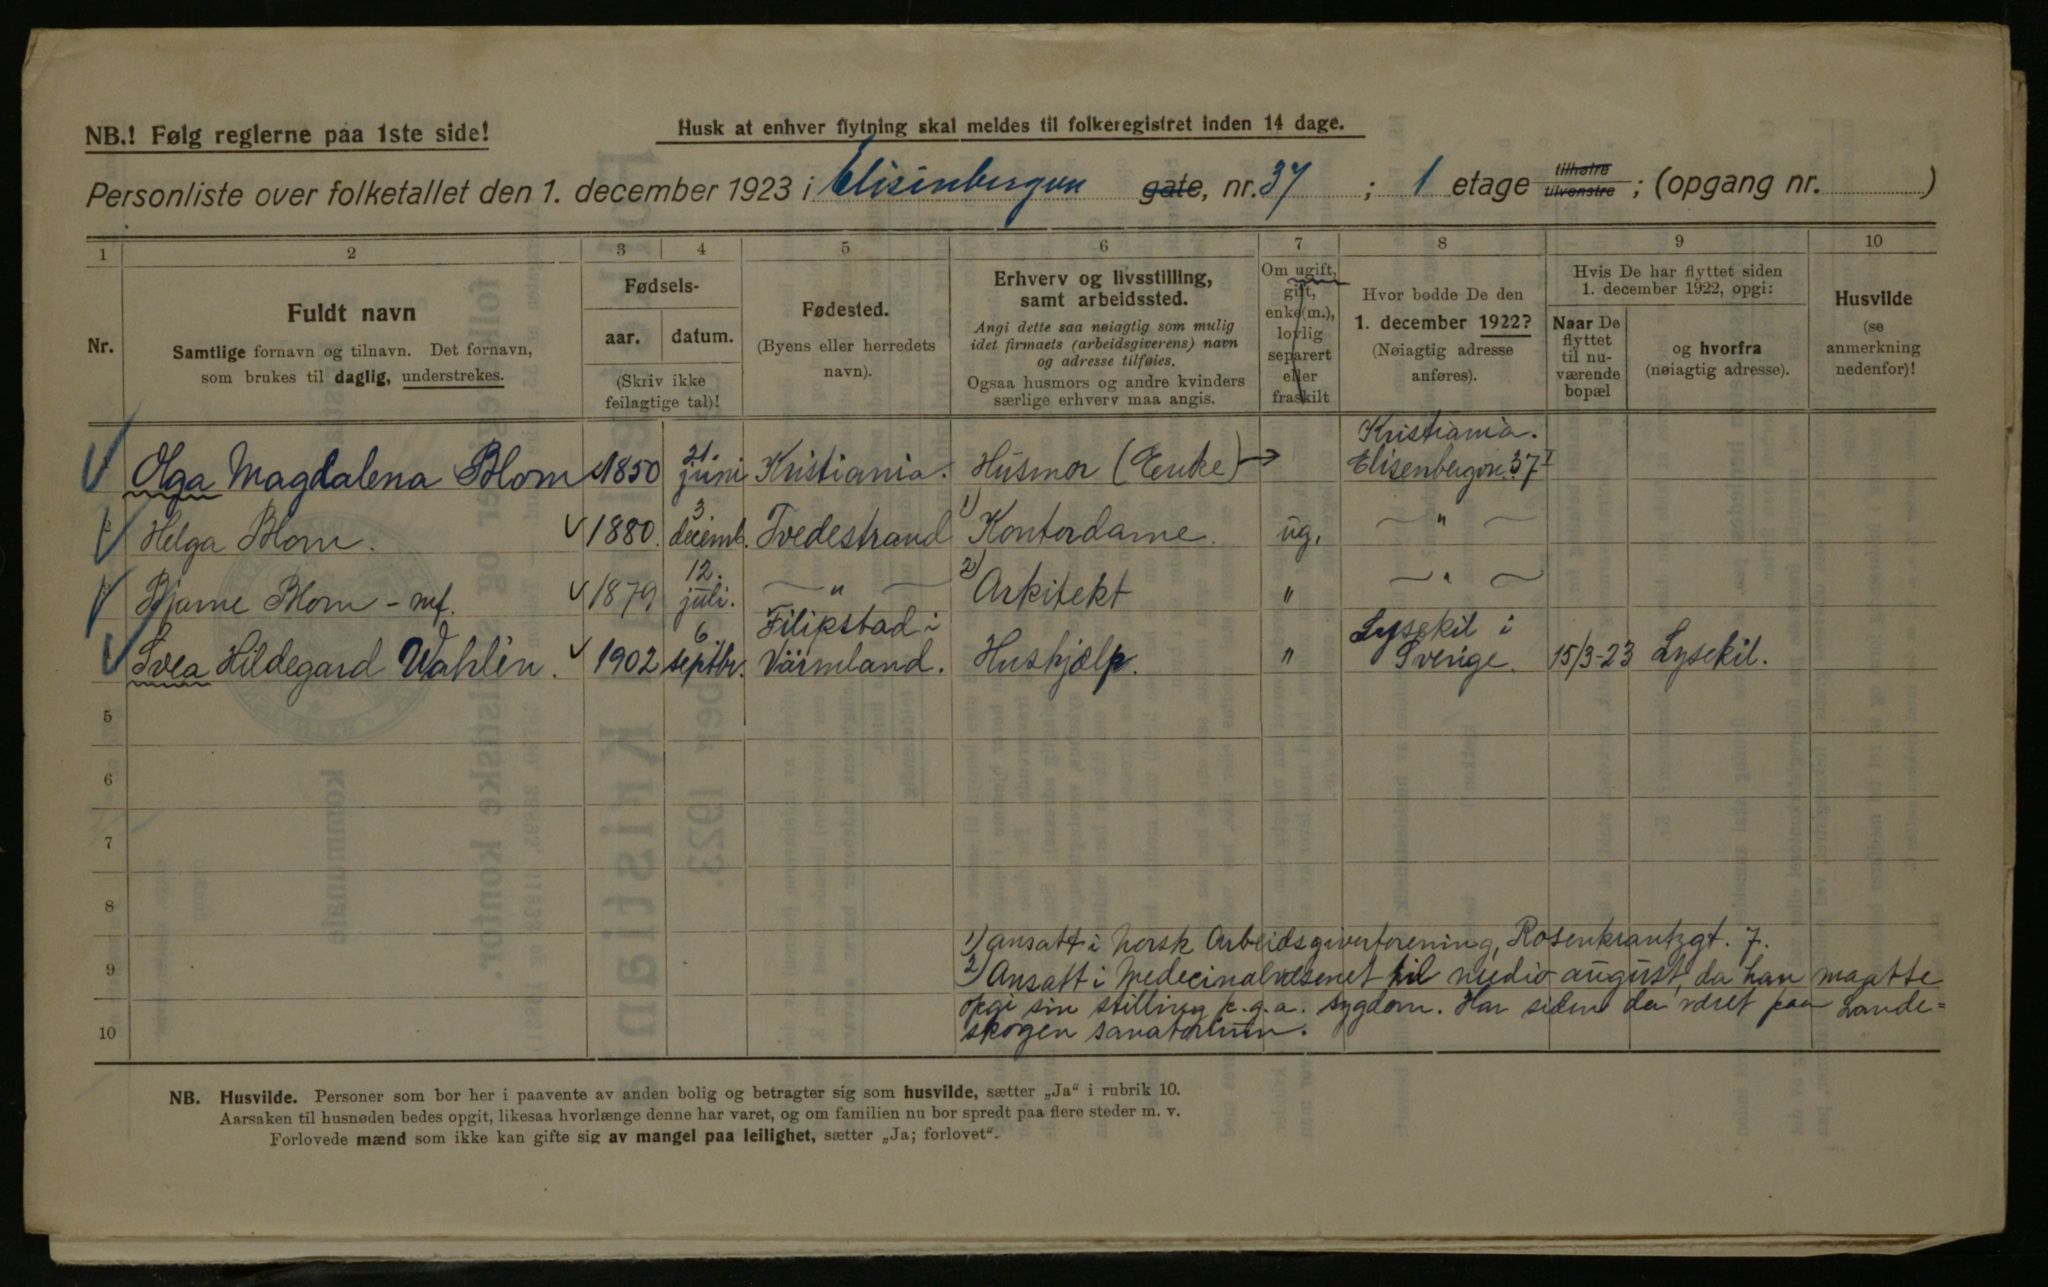 NB.! Følg reglerne paa 1ste side!
Husk at enhver flytning skal meldes til folkeregistret inden 14 dage.
Personliste over folketallet den 1. december 1923 i Elisinbergvn gate, nr. 37 ; 1 etage tilhøire tilvenstre ; (opgang nr. )
1 2 3 4 5 6 7 8 9 10
Nr.
Fuldt navn
Samtlige fornavn og tilnavn. Det fornavn,
som brukes til daglig, understrekes.
Fødsels-
aar. datum.
(Skriv ikke
feilagtige tal)!
Fødested.
(Byens eller herredets
navn).
Erhverv og livsstilling,
samt arbeidssted.
Angi dette saa nøiagtig som mulig
idet firmaets (arbeidsgiverens) navn
og adresse tilføies.
Ogsaa husmors og andre kvinders
særlige erhverv maa angis.
Om ugift,
gift,
enke(m.),
lovlig
separert
eller
fraskilt
Hvor bodde De den
1. december 1922?
(Nøiagtig adresse
anføres).
Hvis De har flyttet siden
1. december 1922, opgi:
Naar De
flyttet
til nu-
værende
bopæl
og hvorfra
(nøiagtig adresse).
Husvilde
(se
anmerkning
nedenfor)!
Olga Magdalena Blom 1850 21. juni Kristiania. Husmor (Enke) → Kristiania. Elisenbergvn. 37 I
Helga Blom. 1880. 3 decemb. Tvedestrand 1) Kontordame. ug. — " —
Bjarne Blom - mf. 1879 12. juli. — " — 2) Arkitekt " — " —
Svea Hildegard Wahlén. 1902 6. septbr. Filipstad i Värmland. Hushjælp. " Lysekil i Sverige. 15/3-23 Lysekil.
5
6
7
8
9
10
1) ansatt i Norsk Arbeidsgiverforening, Rosenkrantzgt. 7.
2) Ansatt i Medecinalvæsenet til medio august, da han maatte
opgi sin stilling p.g.a. sygdom. Har siden da været paa Lande=
skogen sanatorium.
NB. Husvilde. Personer som bor her i paavente av anden bolig og betragter sig som husvilde, sætter „Ja“ i rubrik 10.
Aarsaken til husnøden bedes opgit, likesaa hvorlænge denne har varet, og om familien nu bor spredt paa flere steder m. v.
Forlovede mænd som ikke kan gifte sig av mangel paa leilighet, sætter „Ja; forlovet“.